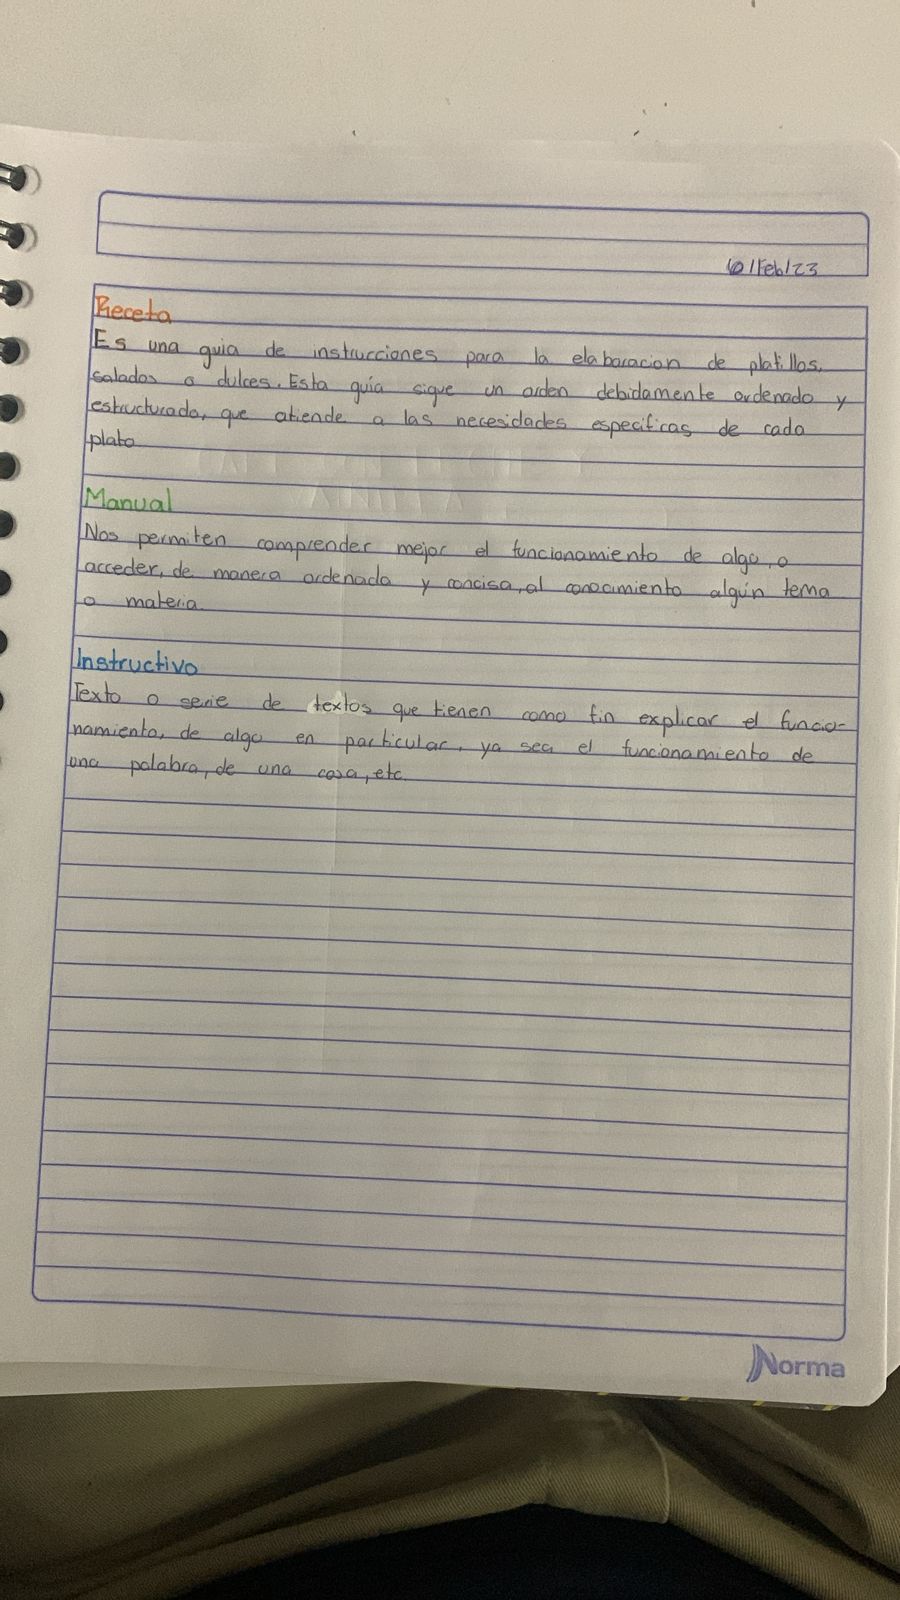 6/Feb/23
Receta
Es una guia de instrucciones para la elaboracion de platillos,
salados o dulces. Esta guía sigue un orden debidamente ordenado y
estructurado, que atiende a las necesidades especificas de cada
plato
Manual
Nos permiten comprender mejor el funcionamiento de algo, o
acceder, de manera ordenada y concisa, al conocimiento algún tema
o materia
Instructivo
Texto o serie de textos que tienen como fin explicar el funcio-
namiento, de algo en particular, ya sea el funcionamiento de
una palabra, de una cosa, etc.
Norma